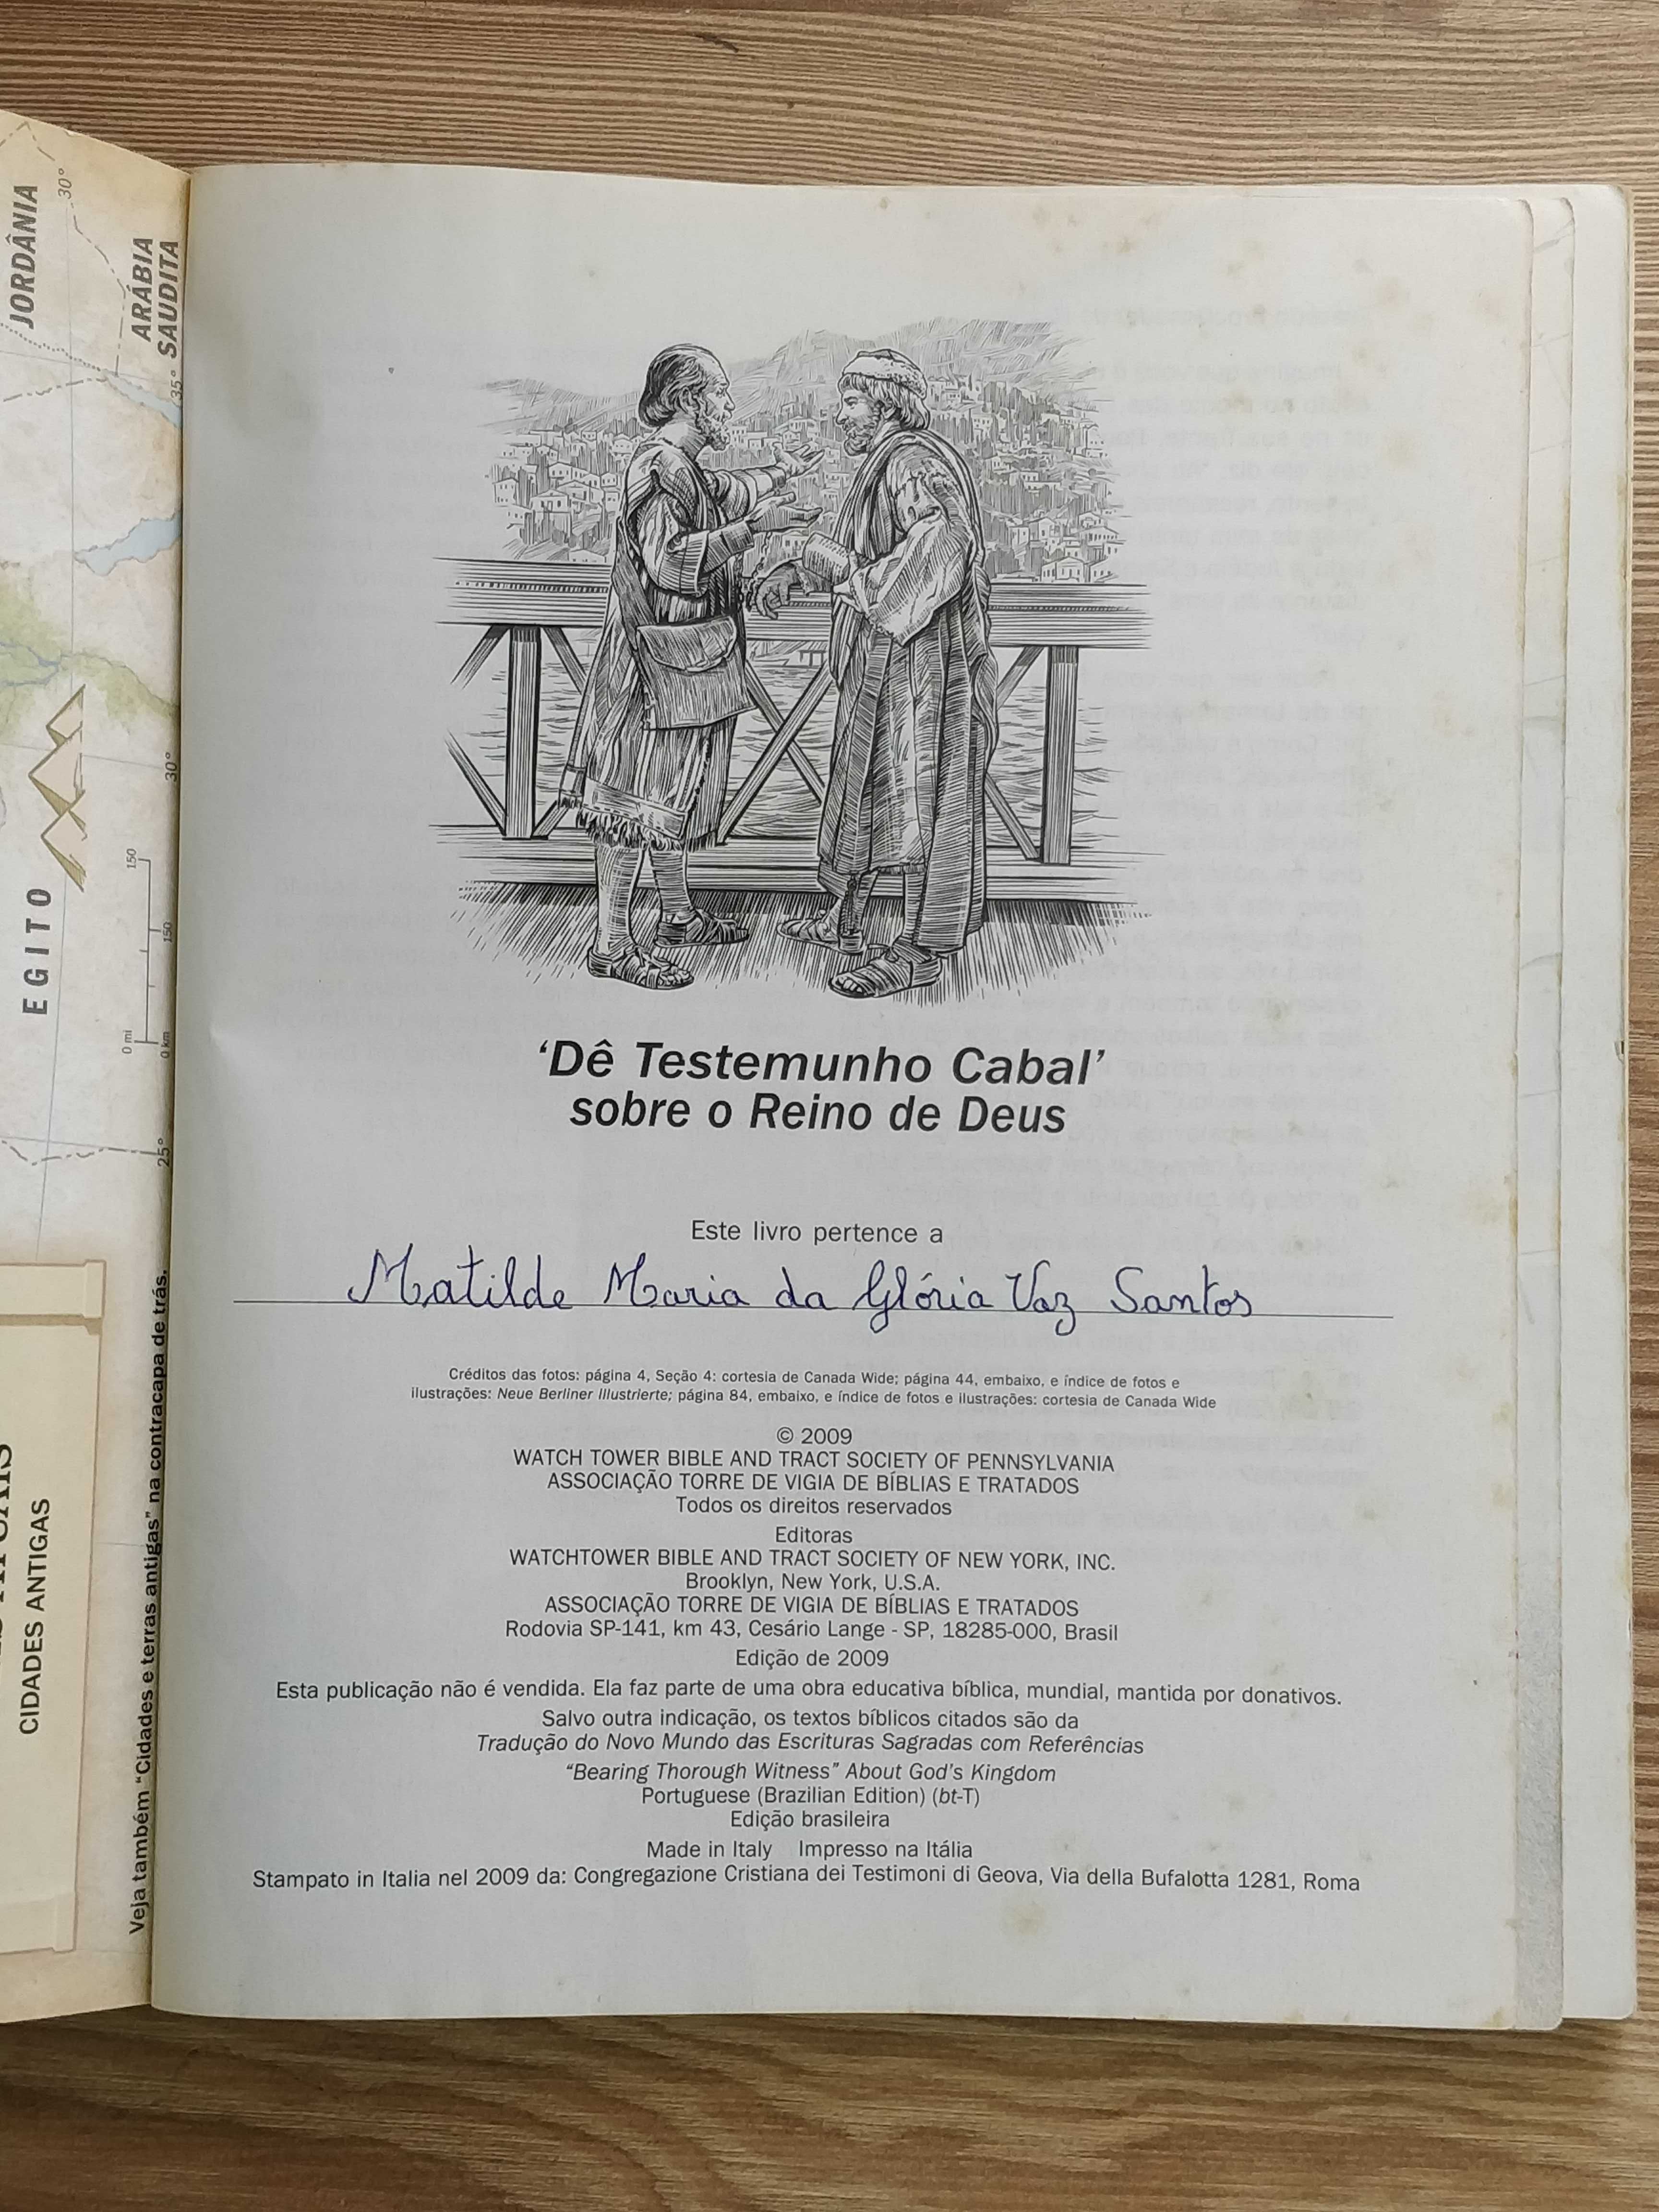 JORDÂNIA
ARÁBIA
SAUDITA
30°
35°
30°
25°
EGITO
150
150
0 mi
0 km
CIDADES ANTIGAS
Veja também “Cidades e terras antigas” na contracapa de trás.
‘Dê Testemunho Cabal’
sobre o Reino de Deus
Este livro pertence a
Matilde Maria da Glória Vaz Santos
Créditos das fotos: página 4, Seção 4: cortesia de Canada Wide; página 44, embaixo, e índice de fotos e
ilustrações: Neue Berliner Illustrierte; página 84, embaixo, e índice de fotos e ilustrações: cortesia de Canada Wide
© 2009
WATCH TOWER BIBLE AND TRACT SOCIETY OF PENNSYLVANIA
ASSOCIAÇÃO TORRE DE VIGIA DE BÍBLIAS E TRATADOS
Todos os direitos reservados
Editoras
WATCHTOWER BIBLE AND TRACT SOCIETY OF NEW YORK, INC.
Brooklyn, New York, U.S.A.
ASSOCIAÇÃO TORRE DE VIGIA DE BÍBLIAS E TRATADOS
Rodovia SP-141, km 43, Cesário Lange - SP, 18285-000, Brasil
Edição de 2009
Esta publicação não é vendida. Ela faz parte de uma obra educativa bíblica, mundial, mantida por donativos.
Salvo outra indicação, os textos bíblicos citados são da
Tradução do Novo Mundo das Escrituras Sagradas com Referências
“Bearing Thorough Witness” About God’s Kingdom
Portuguese (Brazilian Edition) (bt-T)
Edição brasileira
Made in Italy Impresso na Itália
Stampato in Italia nel 2009 da: Congregazione Cristiana dei Testimoni di Geova, Via della Bufalotta 1281, Roma